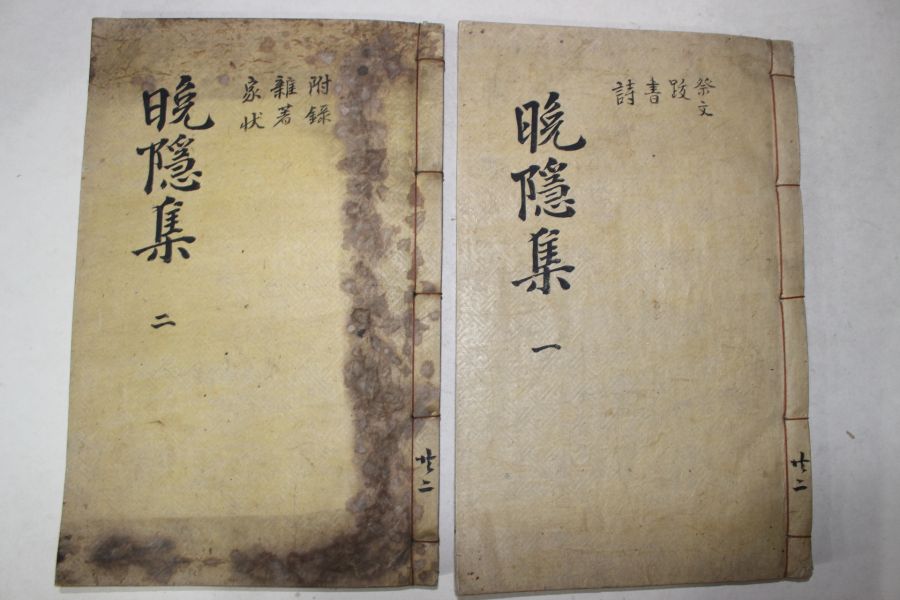 共二
祭文
跋
書
詩
晩隱集 一
共二
附錄
雜著
家狀
晩隱集 二